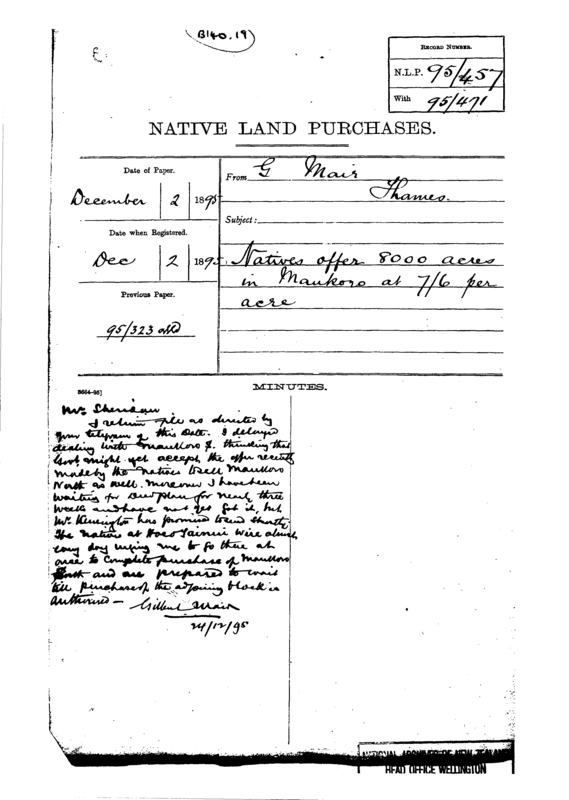 B140.19
RECORD NUMBER.
N.L.P. 95/457
With 95/471
NATIVE LAND PURCHASES.
Date of Paper.
December 2 1895
Date when Registered.
Dec 2 1895
Previous Paper.
95/323
From G Mair
Thames.
Subject:
Natives offer 8000 acres
in Maukoro at 7/6 per
acre
MINUTES.
Mr Sheridan
I return file as directed by
your telegram of this date. I delayed
dealing with Maukoro thinking that
Govt might yet accept the offer recently
made by the natives to sell Maukoro
North as well. Moreover I have been
waiting for plan for nearly three
weeks and have not yet got it, but
Mr has promised to send shortly.
The natives at wire almost
every day urging me to go there at
once to complete purchase of Maukoro
and are prepared to wait
till purchase of the adjoining block is
authorised —
Gilbert Mair
24/12/95
NATIONAL ARCHIVES OF NEW ZEALAND
HEAD OFFICE WELLINGTON